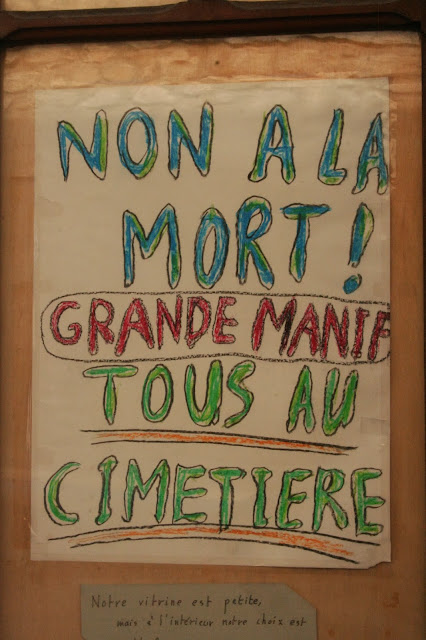 NON A LA
MORT !
GRANDE MANIF
TOUS AU
CIMETIERE
Notre vitrine est petite,
mais à l'intérieur notre choix est